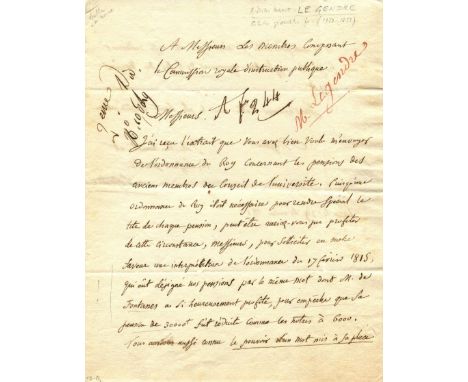 LE GENDRE
A Messieurs Les membres Composant
la Commission royale d'instruction publique
M. Legendre
Messieurs
J'ai reçu l'extrait que vous avez bien voulu m'envoyer
de l'ordonnance du Roy Concernant les pensions des
anciens membres du Conseil de l'université. Puisqu'une
ordonnance du Roy étoit nécessaire pour rendre spécial le
titre de chaque pension, peut être auriez-vous pu profiter
de cette circonstance, Messieurs, pour solliciter en notre
faveur une interprétation de l'ordonnance du 17 fevrier 1815,
qui eût désigné nos pensions par le même mot dont M. de
Fontanes a si heureusement profité, pour empêcher que sa
pension de 30000 fut réduite comme les nôtres à 6000.
Vous aussi connu le pouvoir d'un mot mis à sa place